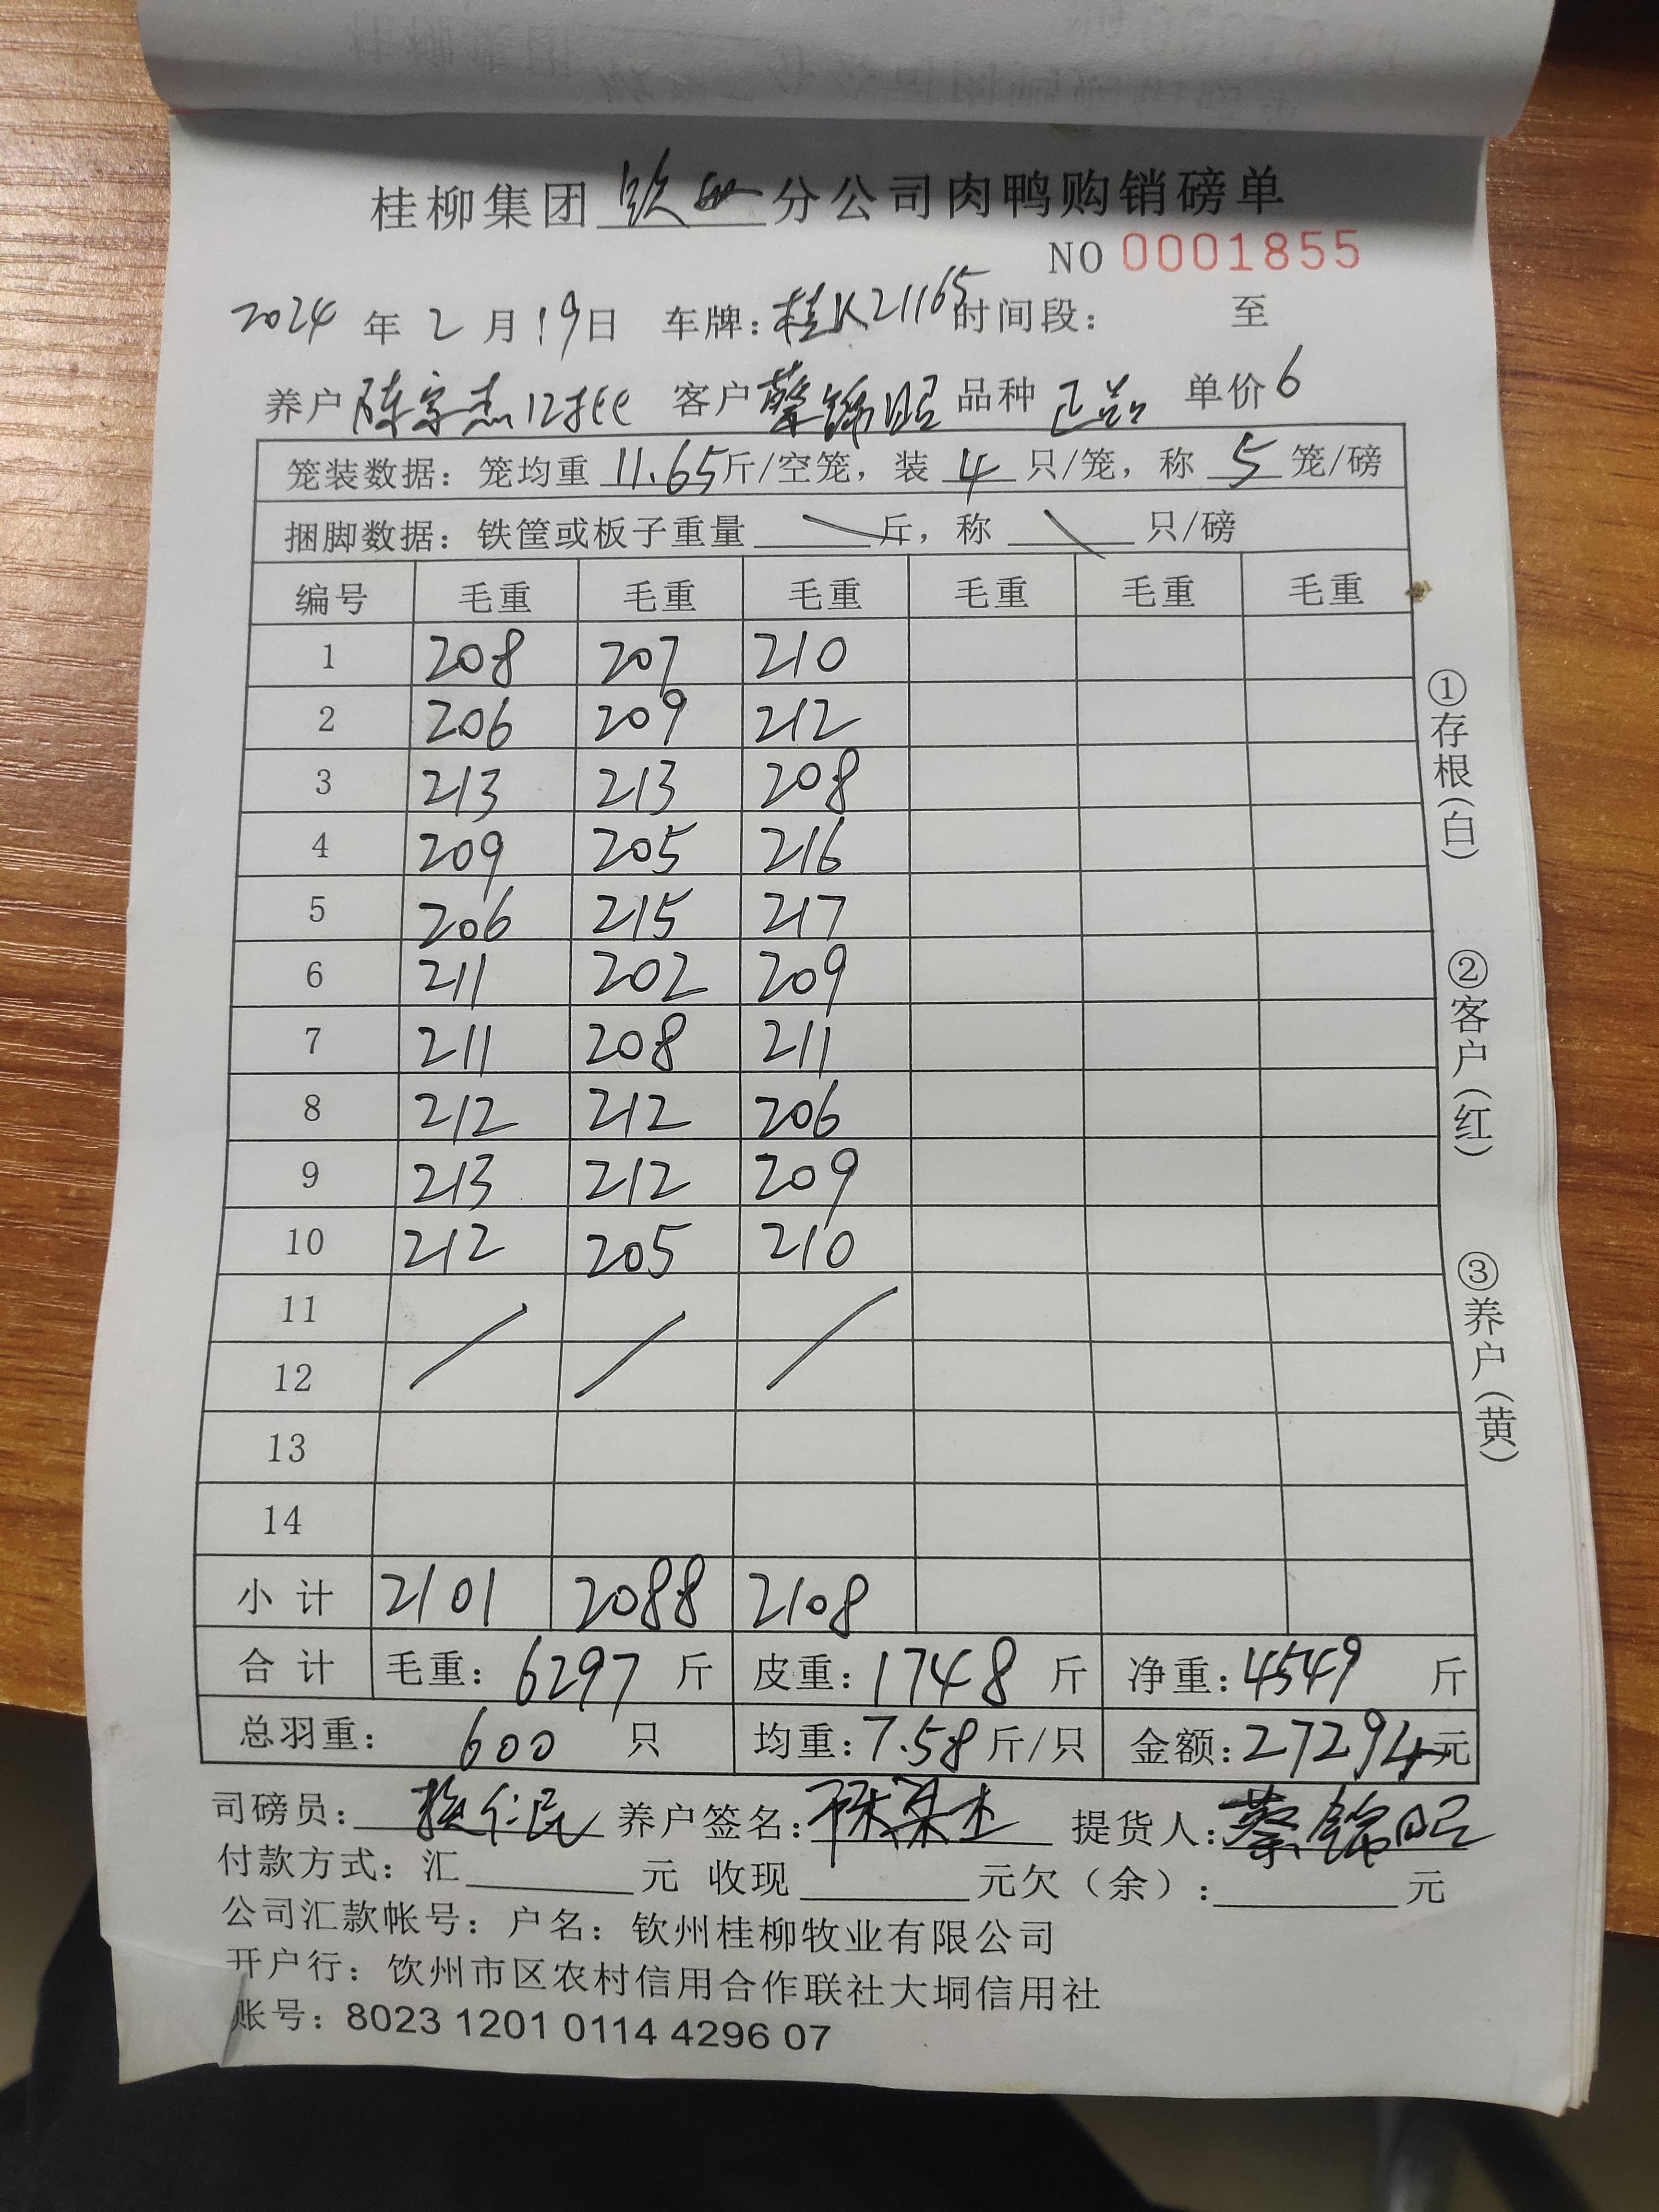 桂柳集团 钦州 分公司肉鸭购销磅单
NO 0001855
2024 年 2 月 19 日 车牌：桂K21165 时间段： 至
养户 陈宗杰12批 客户 蔡锦昭 品种 正品 单价 6
笼装数据：笼均重 11.65 斤/空笼，装 4 只/笼，称 5 笼/磅
捆脚数据：铁筐或板子重量 斤，称 只/磅
编号 毛重 毛重 毛重 毛重 毛重 毛重
1 208 207 210
2 206 209 212
3 213 213 208
4 209 205 216
5 206 215 217
6 211 202 209
7 211 208 211
8 212 212 206
9 213 212 209
10 212 205 210
11
12
13
14
小计 2101 2088 2108
合计 毛重：6297 斤 皮重：1748 斤 净重：4549 斤
总羽重：600 只 均重：7.58 斤/只 金额：27294 元
司磅员： 仁民 养户签名： 提货人：蔡锦昭
付款方式：汇 元 收现 元欠（余）： 元
公司汇款帐号：户名：钦州桂柳牧业有限公司
开户行：钦州市区农村信用合作联社大垌信用社
账号：8023 1201 0114 4296 07
①存根（白）
②客户（红）
③养户（黄）